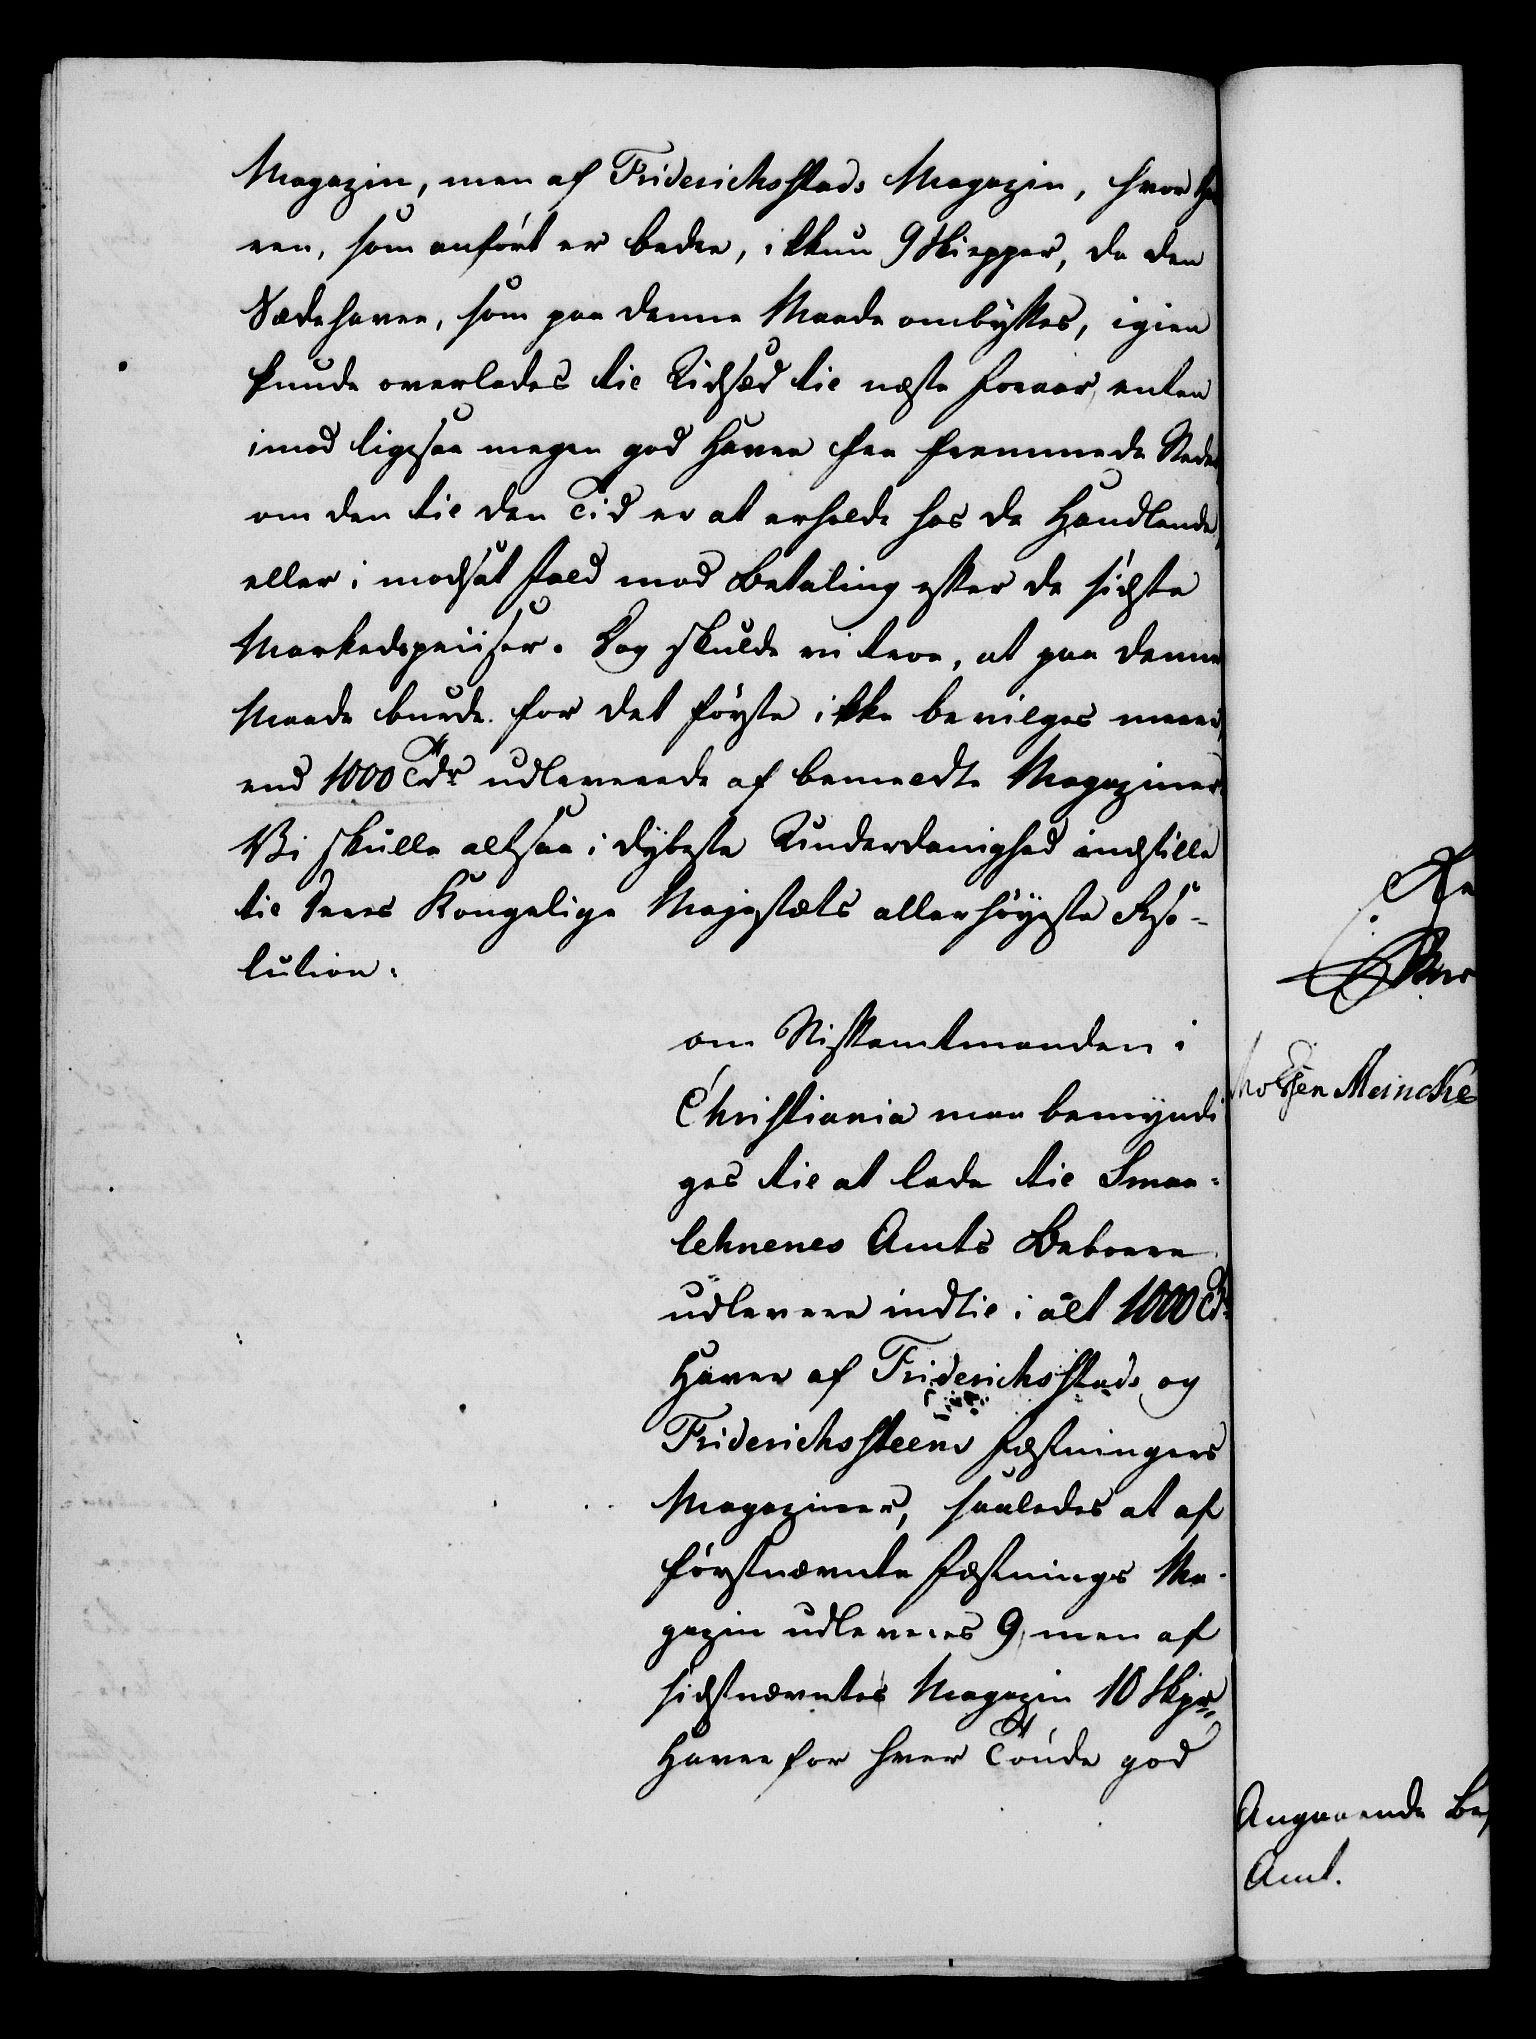 Magazin, men af Friderichsstads Magazin, hvor Ha
ren, som anført er bedre, ikkun 9 Skiepper, da den
Sædehavre, som paa denne Maade ombyttes, igien
kunde overlades til Udsæd til næste Foraar, enten
imod ligesaa megen god Havre fra fremmede Stæder
om den til den Tid er at erholde hos de Handlende,
eller i modsat Fald mod Betaling efter de sidste
Markedspriiser. Dog skulde vi troe, at paa denne
Maade burde for det første ikke bevilges meere,
end 1000 Tdr udleverede af bemeldte Magaziner.
Vi skulle altsaa i dybeste Underdanighed indstille
til Deres Kongelige Majestæts allerhøyeste Reso-
lution:
om Stiftamtmanden i
Christiania maa bemyndi
ges til at lade til Smaa-
lehnenes Amts Beboere
udlevere indtil i alt 1000 Tdr
Havre af Friderichsstads og
Friderichssteens Fæstningers
Magaziner, saaledes at af
førstnævnte Fæstnings Ma-
gazin udleveres 9, men af
sidstnævntes Magazin 10 Skpr
Havre for hver Tønde god
Meincke
Angaaende Be
Amt.